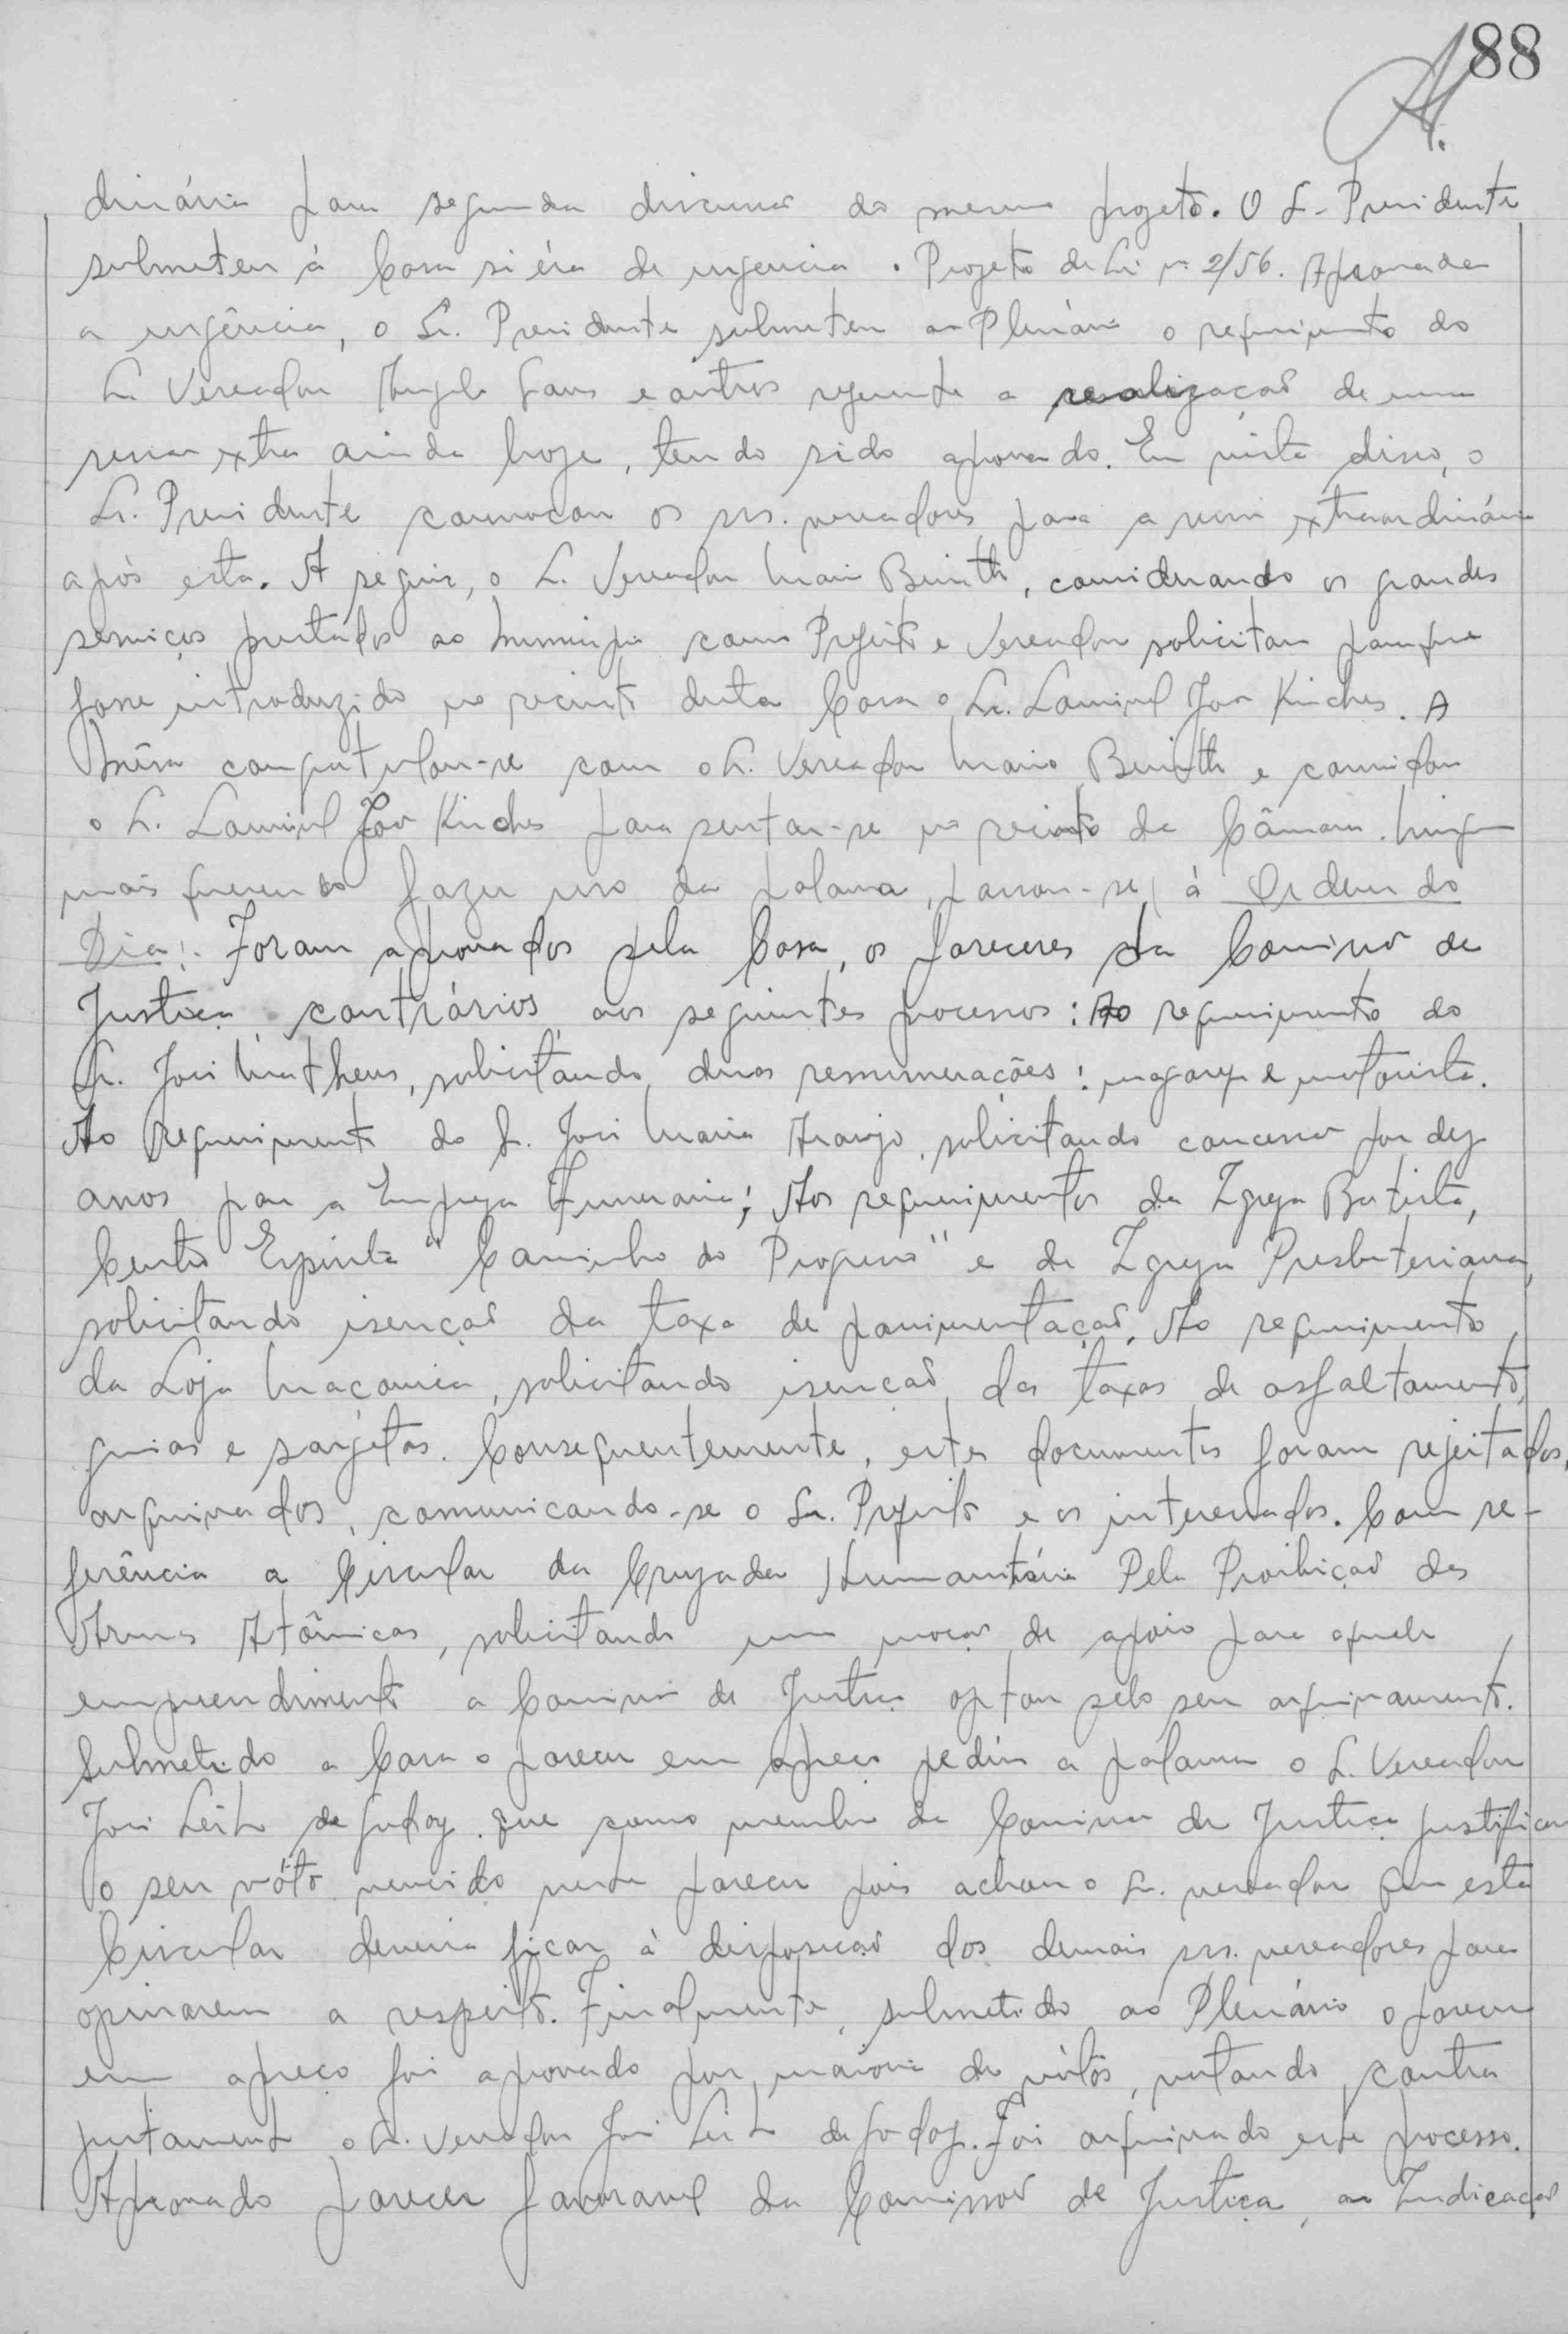 88
dinária para segunda discussão do mesmo projeto. O Sr. Presidente
submeteu à Casa si éra de urgencia o Projeto de Lei nº 2/56. Aprovada
a urgência, o Sr. Presidente submeteu ao Plenário o requerimento do
Sr. Vereador e outros referente a realização de uma
sessão extra ainda hoje, tendo sido aprovado. Em vista disso, o
Sr. Presidente convocou os srs. vereadores para a sessão extraordinária
após esta. A seguir, o Sr. Vereador Mario, considerando os grandes
serviços prestados ao Municipio como Prefeito e Vereador solicitou para que
fosse introduzido no recinto desta Casa o Sr. João Kirches. A
Mêsa congratulou-se com o Sr. Vereador Mario e convidou
o Sr. João Kirches para sentar-se no recinto da Câmara. Ninguem
mais querendo fazer uso da palavra, passou-se à Ordem do
Dia:- Foram aprovados pela Casa, os pareceres da Comissão de
Justiça, contrários aos seguintes processos: Ao requerimento do
Sr. José Matheus, solicitando duas remunerações: magarefe e motorista.
Ao Requerimento do Sr. José Maria Araujo, solicitando concessão por dez
anos para a Empreza Funeraria; Aos requerimentos da Igreja Batista,
Centro Espirita "Caminho do Progresso" e da Igreja Presbiteriana,
solicitando isenção da taxa de pavimentação. Ao requerimento
da Loja Maçonica, solicitando isenção das taxas de asfaltamento,
guias e sarjetas. Consequentemente, estes documentos foram rejeitados,
arquivados, comunicando-se o Sr. Prefeito e os interessados. Com re-
ferência a Circular da Cruzada Humanitária Pela Proibição das
Armas Atômicas, solicitando uma moção de apoio para aquele
empreendimento a Comissão de Justiça optou pelo seu arquivamento.
Submetido a Casa o parecer em apreço pediu a palavra o Sr. Vereador
José Leite de Godoy que como membro da Comissão de Justiça justificou
o seu vóto vencido neste parecer pois achava o Sr. vereador que esta
Circular deveria ficar à disposição dos demais srs. vereadores para
opinarem a respeito. Finalmente, submetido ao Plenário o parecer
em apreço foi aprovado por maioria de vótos, votando contra
justamente o Sr. Vereador José Leite de Godoy. Foi arquivado este processo.
Aprovado parecer favoravel da Comissão de Justiça, a Indicação